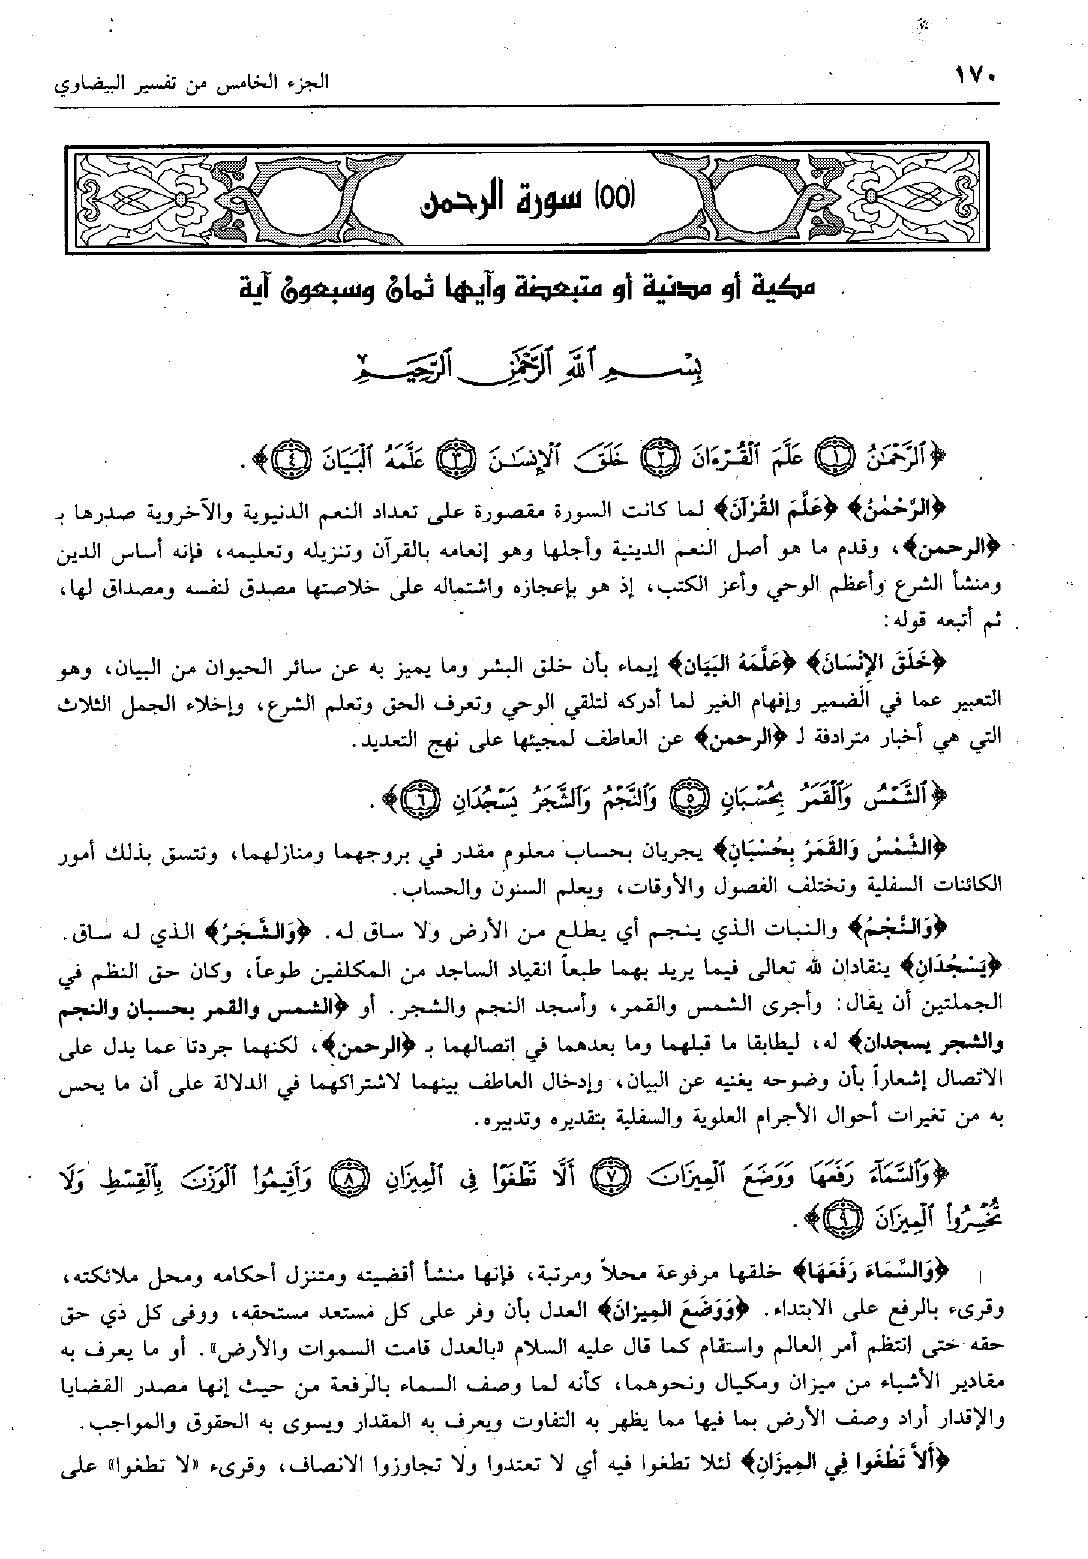 ١٧٠
الجزء الخامس من تفسير البيضاوي
(٥٥) سورة الرحمن
مكية أو مدنية أو متبعضة وآيها ثمان وسبعون آية
بِسْمِ ٱللَّهِ ٱلرَّحْمَٰنِ ٱلرَّحِيمِ
﴿ٱلرَّحْمَٰنُ ١ عَلَّمَ ٱلْقُرْءَانَ ٢ خَلَقَ ٱلْإِنسَٰنَ ٣ عَلَّمَهُ ٱلْبَيَانَ ٤﴾.
﴿الرَّحْمٰنُ﴾ ﴿عَلَّمَ القُرْآنَ﴾ لما كانت السورة مقصورة على تعداد النعم الدنيوية والآخروية صدرها بـ
﴿الرحمن﴾، وقدم ما هو أصل النعم الدينية وأجلها وهو إنعامه بالقرآن وتنزيله وتعليمه، فإنه أساس الدين
ومنشأ الشرع وأعظم الوحي وأعز الكتب، إذ هو بإعجازه واشتماله على خلاصتها مصدق لنفسه ومصداق لها،
ثم أتبعه قوله:
﴿خَلَقَ الإِنْسَانَ﴾ ﴿عَلَّمَهُ البَيَانَ﴾ إيماء بأن خلق البشر وما يميز به عن سائر الحيوان من البيان، وهو
التعبير عما في الضمير وإفهام الغير لما أدركه لتلقي الوحي وتعرف الحق وتعلم الشرع، وإخلاء الجمل الثلاث
التي هي أخبار مترادفة لـ ﴿الرحمن﴾ عن العاطف لمجيئها على نهج التعديد.
﴿ٱلشَّمْسُ وَٱلْقَمَرُ بِحُسْبَانٍ ٥ وَٱلنَّجْمُ وَٱلشَّجَرُ يَسْجُدَانِ ٦﴾.
﴿الشَّمْسُ وَالقَمَرُ بِحُسْبَانٍ﴾ يجريان بحساب معلوم مقدر في بروجهما ومنازلهما، وتتسق بذلك أمور
الكائنات السفلية وتختلف الفصول والأوقات، ويعلم السنون والحساب.
﴿وَالنَّجْمُ﴾ والنبات الذي ينجم أي يطلع من الأرض ولا ساق له. ﴿وَالشَّجَرُ﴾ الذي له ساق.
﴿يَسْجُدَانِ﴾ ينقادان لله تعالى فيما يريد بهما طبعاً انقياد الساجد من المكلفين طوعاً، وكان حق النظم في
الجملتين أن يقال: وأجرى الشمس والقمر، وأسجد النجم والشجر. أو ﴿الشمس والقمر بحسبان والنجم
والشجر يسجدان﴾ له، ليطابقا ما قبلهما وما بعدهما في إتصالهما بـ ﴿الرحمن﴾، لكنهما جردتا عما يدل على
الاتصال إشعاراً بأن وضوحه يغنيه عن البيان، وإدخال العاطف بينهما لاشتراكهما في الدلالة على أن ما يحس
به من تغيرات أحوال الأجرام العلوية والسفلية بتقديره وتدبيره.
﴿وَٱلسَّمَآءَ رَفَعَهَا وَوَضَعَ ٱلْمِيزَانَ ٧ أَلَّا تَطْغَوْا۟ فِى ٱلْمِيزَانِ ٨ وَأَقِيمُوا۟ ٱلْوَزْنَ بِٱلْقِسْطِ وَلَا
تُخْسِرُوا۟ ٱلْمِيزَانَ ٩﴾.
﴿وَالسَّمَاءَ رَفَعَهَا﴾ خلقها مرفوعة محلاً ومرتبة، فإنها منشأ أقضيته ومتنزل أحكامه ومحل ملائكته،
وقرىء بالرفع على الابتداء. ﴿وَوَضَعَ المِيزانَ﴾ العدل بأن وفر على كل مستعد مستحقه، ووفى كل ذي حق
حقه حتى إنتظم أمر العالم واستقام كما قال عليه السلام «بالعدل قامت السموات والأرض». أو ما يعرف به
مقادير الأشياء من ميزان ومكيال ونحوهما، كأنه لما وصف السماء بالرفعة من حيث إنها مصدر القضايا
والإقدار أراد وصف الأرض بما فيها مما يظهر به التفاوت ويعرف به المقدار ويسوى به الحقوق والمواجب.
﴿أَلاَّ تَطْغَوا فِي المِيزَانِ﴾ لئلا تطغوا فيه أي لا تعتدوا ولا تجاوزوا الانصاف، وقرىء «لا تطغوا» على